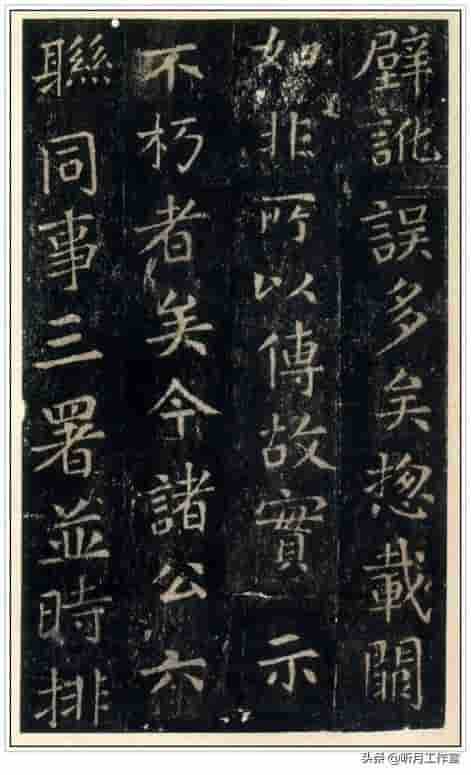 壁訛誤多矣惣載闕
如非所以傳故實示
不朽者矣今諸公六
聯同事三署並時排
头条@听月工作室